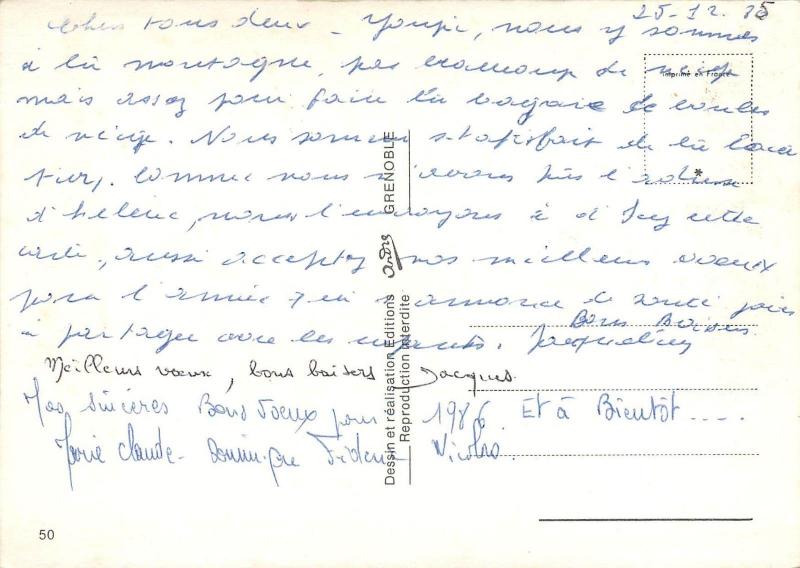 25-12. 85
Chers tous deux - Youpi, nous y sommes
à la montagne, pas beaucoup de neige
Imprimé en France
mais assez pour faire la bagarre de boules
de neige. Nous sommes satisfait de la loca
tion. Comme nous n'avons pas l'adresse
d'helène, nous l'envoyons à d
cette
carte, aussi acceptez nos meilleurs voeux
pour l'année qui s'annonce de santé joies
à partager avec les enfants. Jacqueline
Bons Baisers
Meilleurs vœux, bons baisers Jacques.
Nos sincères Bons Voeux pour 1986. Et à Bientôt.....
Marie Claude - Dominique Frédéric Nicolas.
Dessin et réalisation Editions André GRENOBLE
Reproduction interdite
50